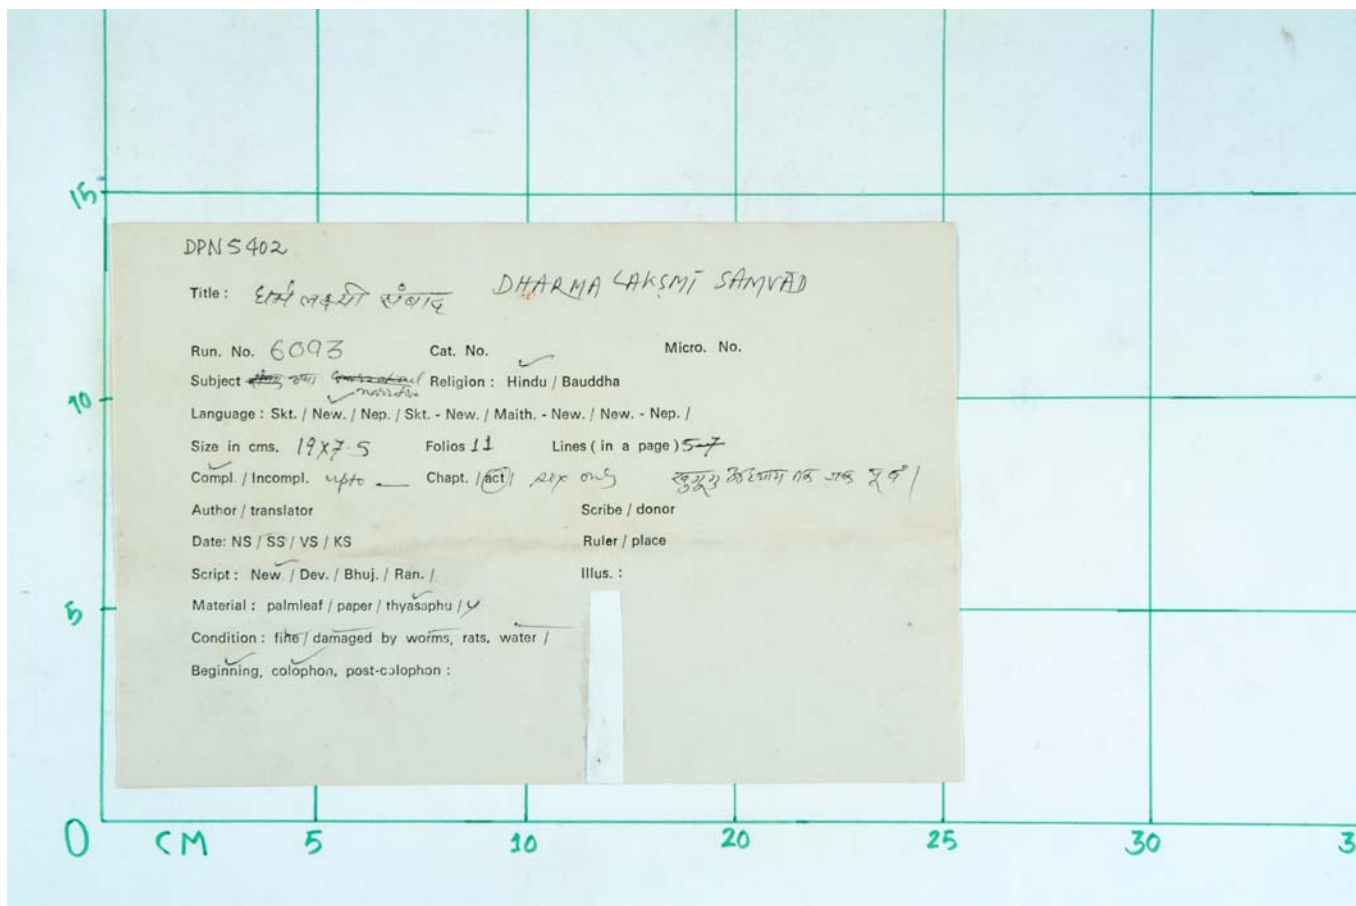 DPN 5402
Title : धर्म लक्ष्मी संवाद DHARMA LAKSMI SAMVAD
Run. No. 6093 Cat. No. Micro. No.
Subject कथा narrative Religion : Hindu / Bauddha
Language : Skt. / New. / Nep. / Skt. - New. / Maith. - New. / New. - Nep. /
Size in cms. 19x7.5 Folios 11 Lines ( in a page ) 5-7
Compl. / Incompl. upto Chapt. / act / six only
Author / translator Scribe / donor
Date: NS / SS / VS / KS Ruler / place
Script : New / Dev. / Bhuj. / Ran. / Illus. :
Material : palmleaf / paper / thyasaphu /
Condition : fine / damaged by worms, rats, water /
Beginning, colophon, post-colophon :
15
10
5
0 CM 5 10 20 25 30 3